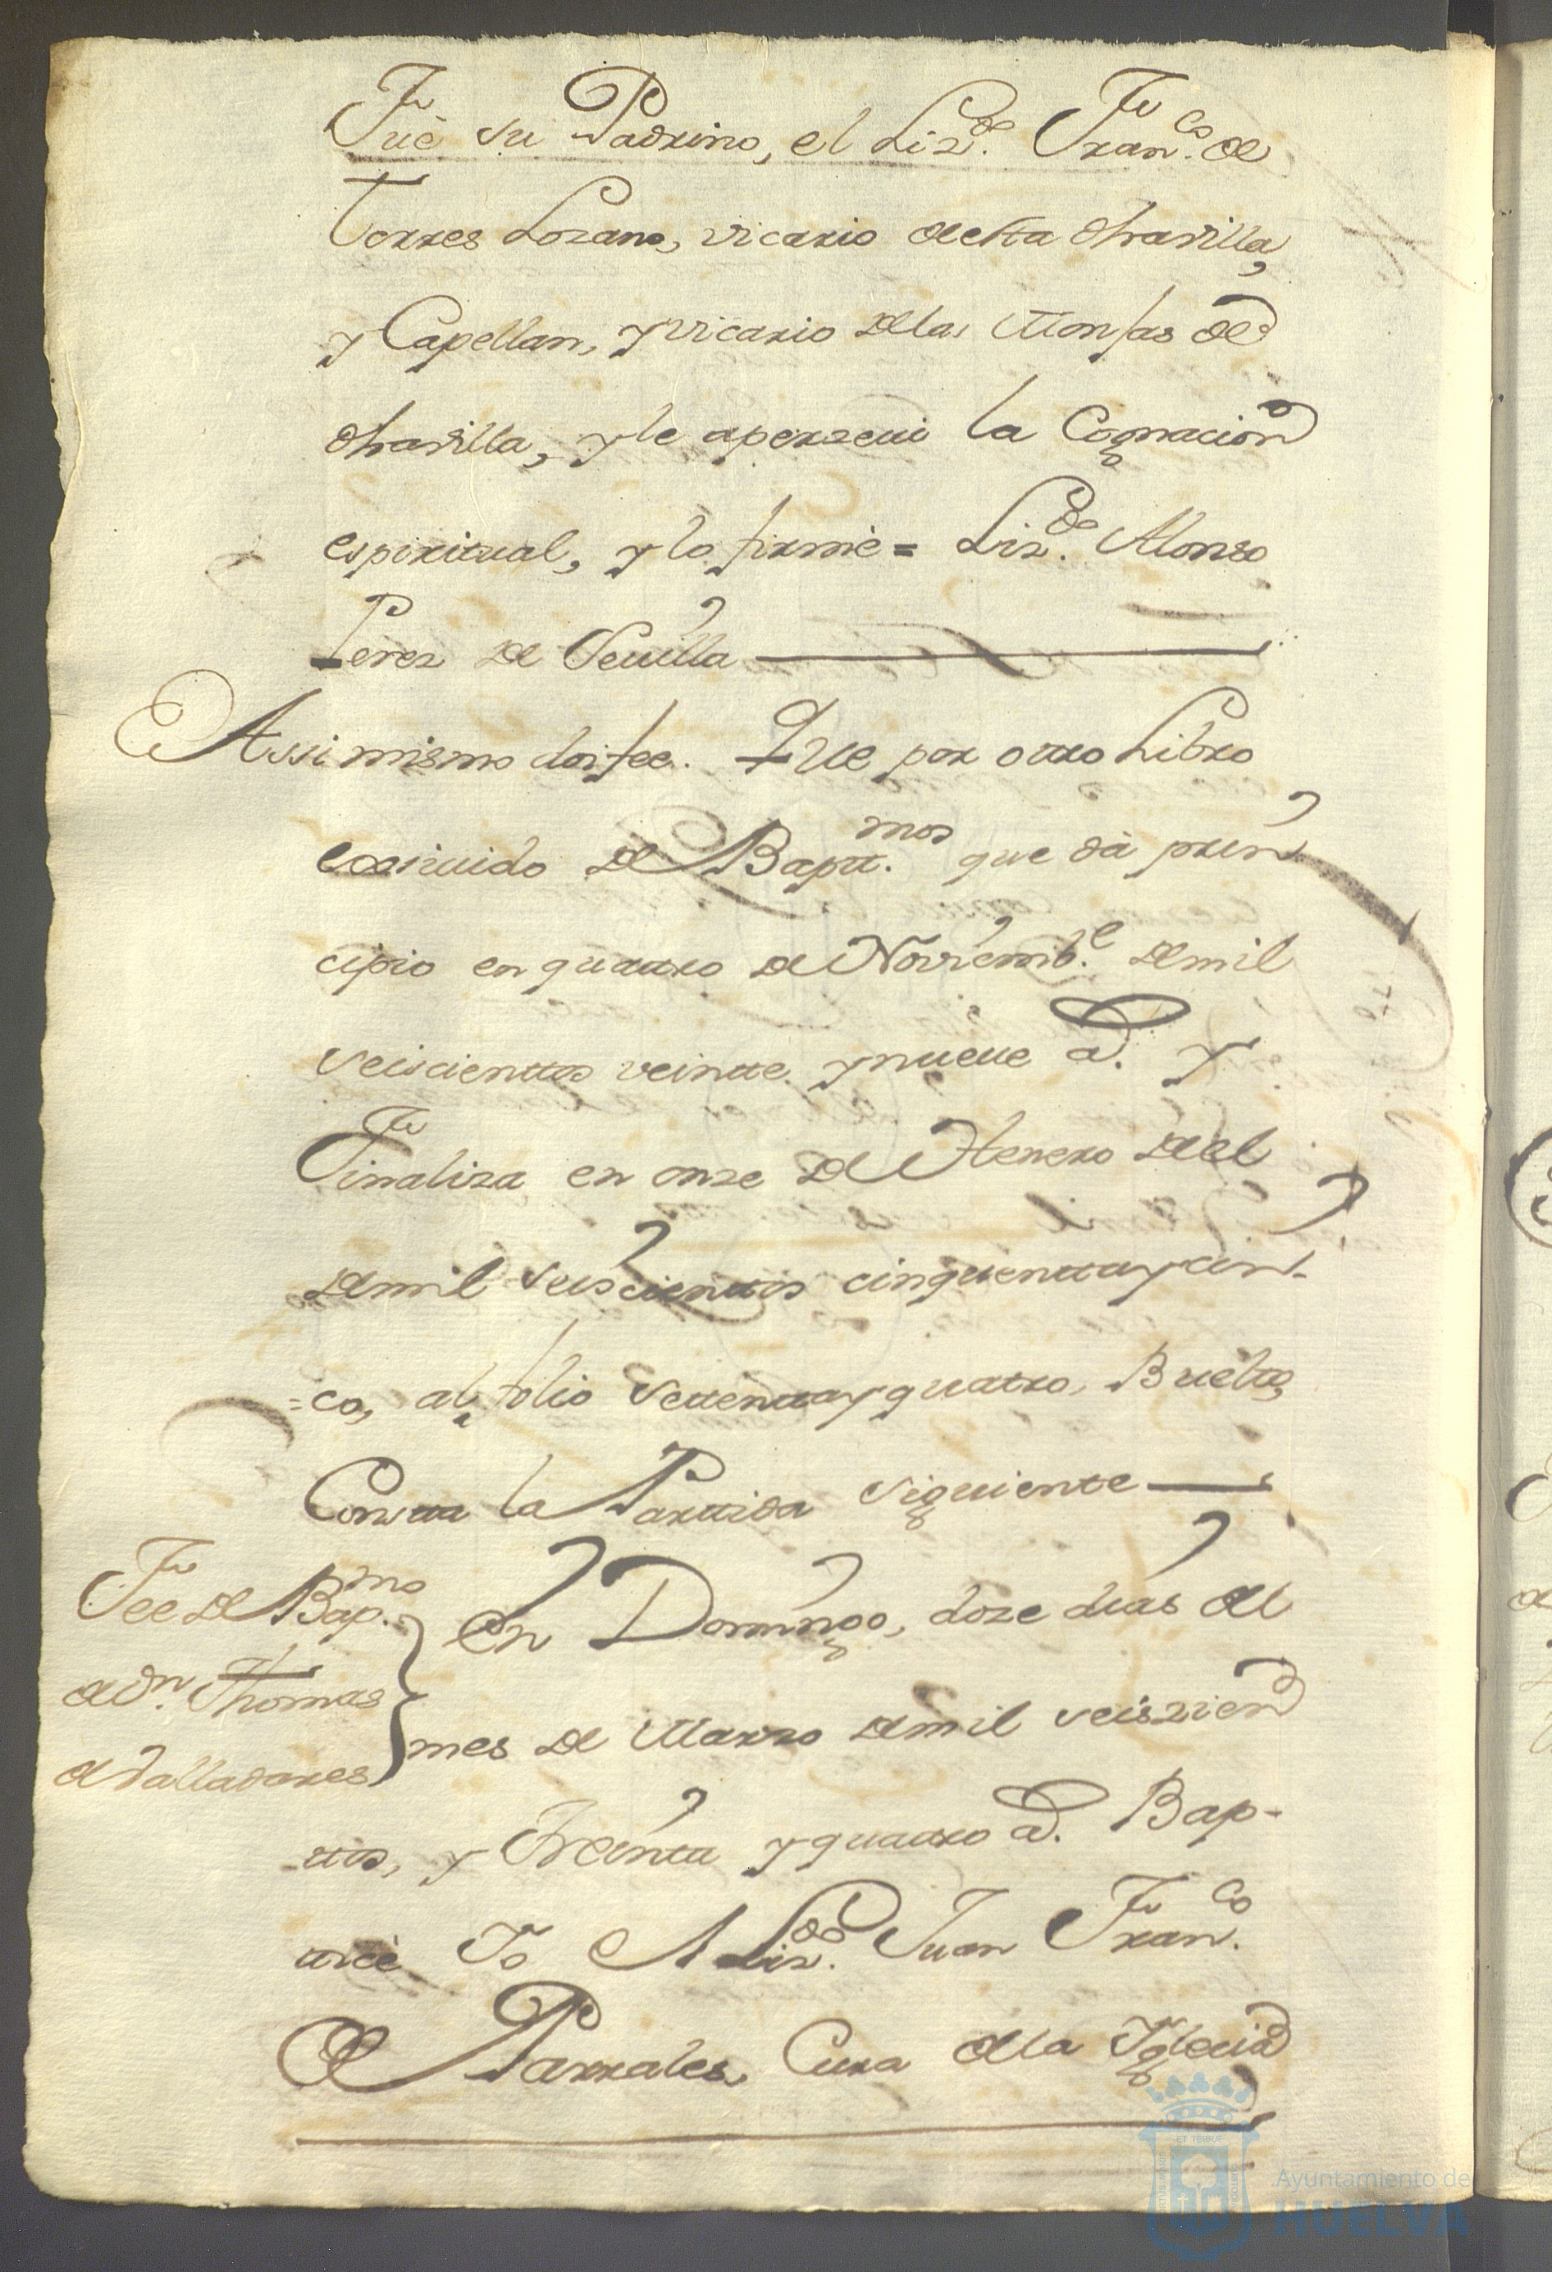 Fuè su Padrino, el Lizdo. Franco. de
Torres Lozano, vicario desta dhavilla,
y Capellan, y vicario de las Monjas de
dhavilla, y le aperzeui la Cognacion
espiritual, y lo firmè = Lizdo. Alonso
Perez de Seuilla
Assi mismo doi fee. Que por otro Libro
de Baptt.mos que dà prin
cipio en quattro de Noviemb.e de mil
seiscienttos veintte y nueue a.s y
Finaliza en onze de Henero del
de mil seiscienttos cinquenttay cin-
=co, al folio settenttay quatro, Buelto,
Constta la Parttida siguiente
Fee de Bap.mo
a Dn. Thomas
de Valladares
En Domingo, doze dias del
mes de Marzo de mil seiszien
-ttos, y Treinta y quattro a.s Bap-
ticè Yo El Lizdo. Juan Franco.
de Parrales, Cura de la Yglesia
Ayuntamiento de
HUELVA